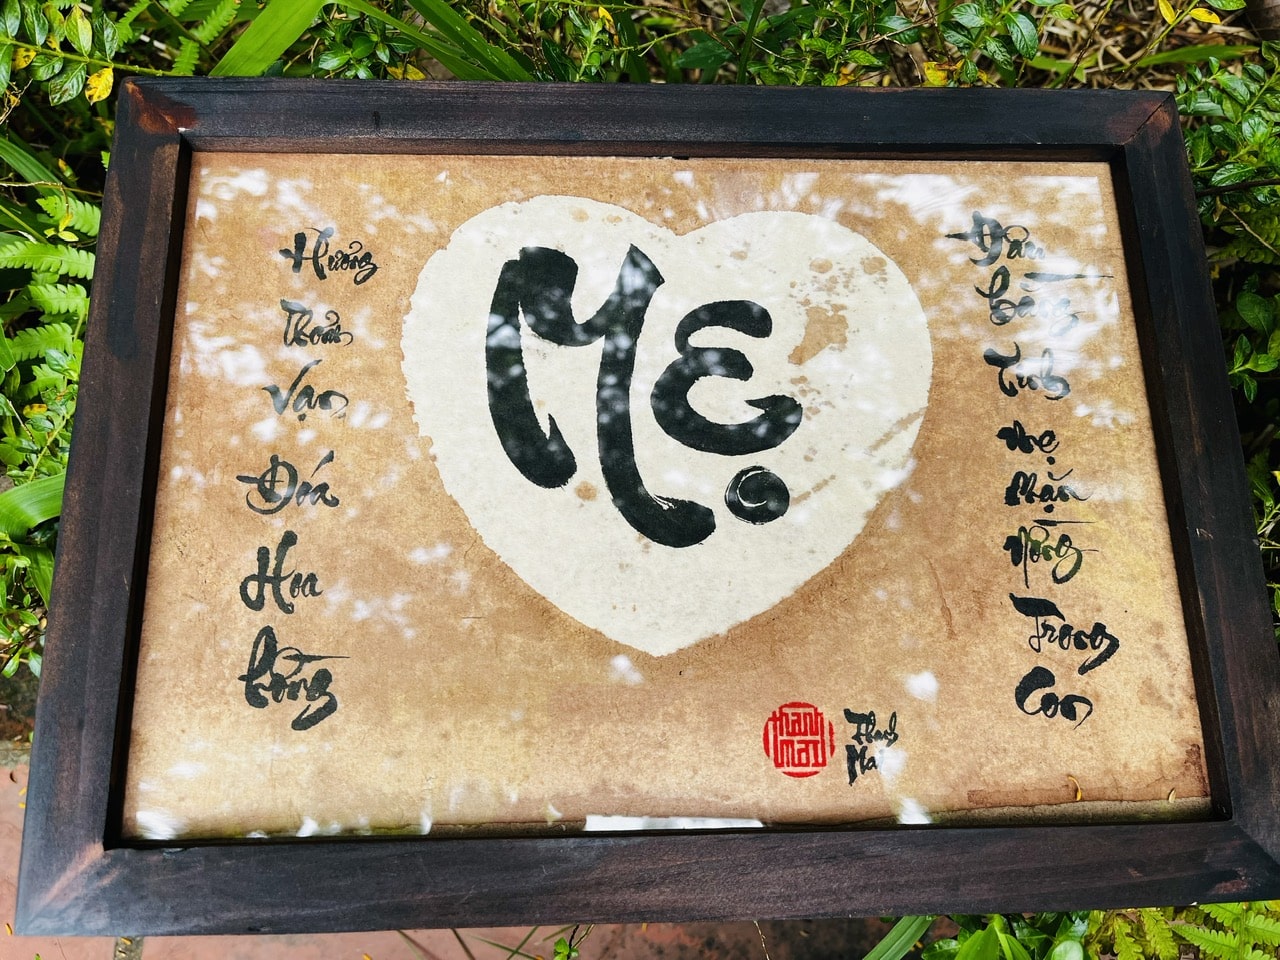 Hương
Thơm
Vạn
Đóa
Hoa
hồng
Mẹ
Đâu
bằng
Tình
mẹ
mặn
nồng
Trong
Con
thanh
mai
Thanh
Mai